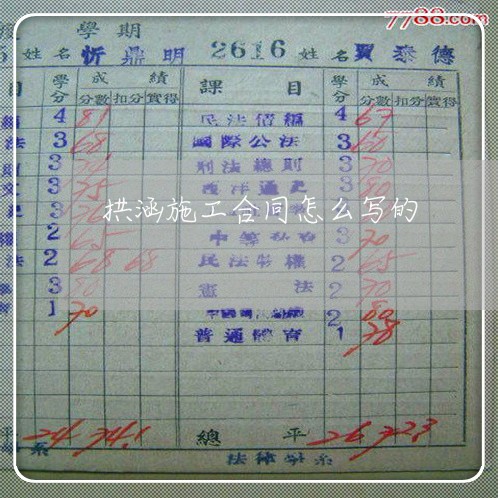 7788.com
學期
姓名 忻鼎明 2616 姓名 賈泰德
目 學分 成績 課目 學分 成績
分數 扣分 實得 分數 扣分 實得
4 81 民法債編 4 67
法 3 68 國際公法 3 60
3 刑法總則 3 70
3 75 西洋通史 3 80
拱涵施工合同怎么写的
2 65 3 70
法 2 68 68 民法物權 2 65
3 80 憲法 2 70
1 70 2 80
普通體育 1 78
平 24 74.1 總平 26 72.3
系 法律學系